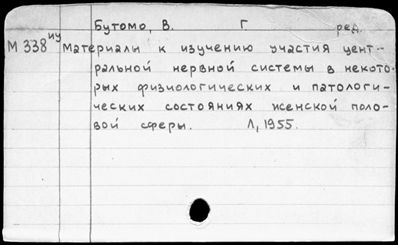 Бутомо, В. Г ред.
М 338 иу Материалы к изучению участия цент-
ральной нервной системы в некото-
рых физиологических и патологи-
ческих состояниях женской поло-
вой сферы. Л, 1955.